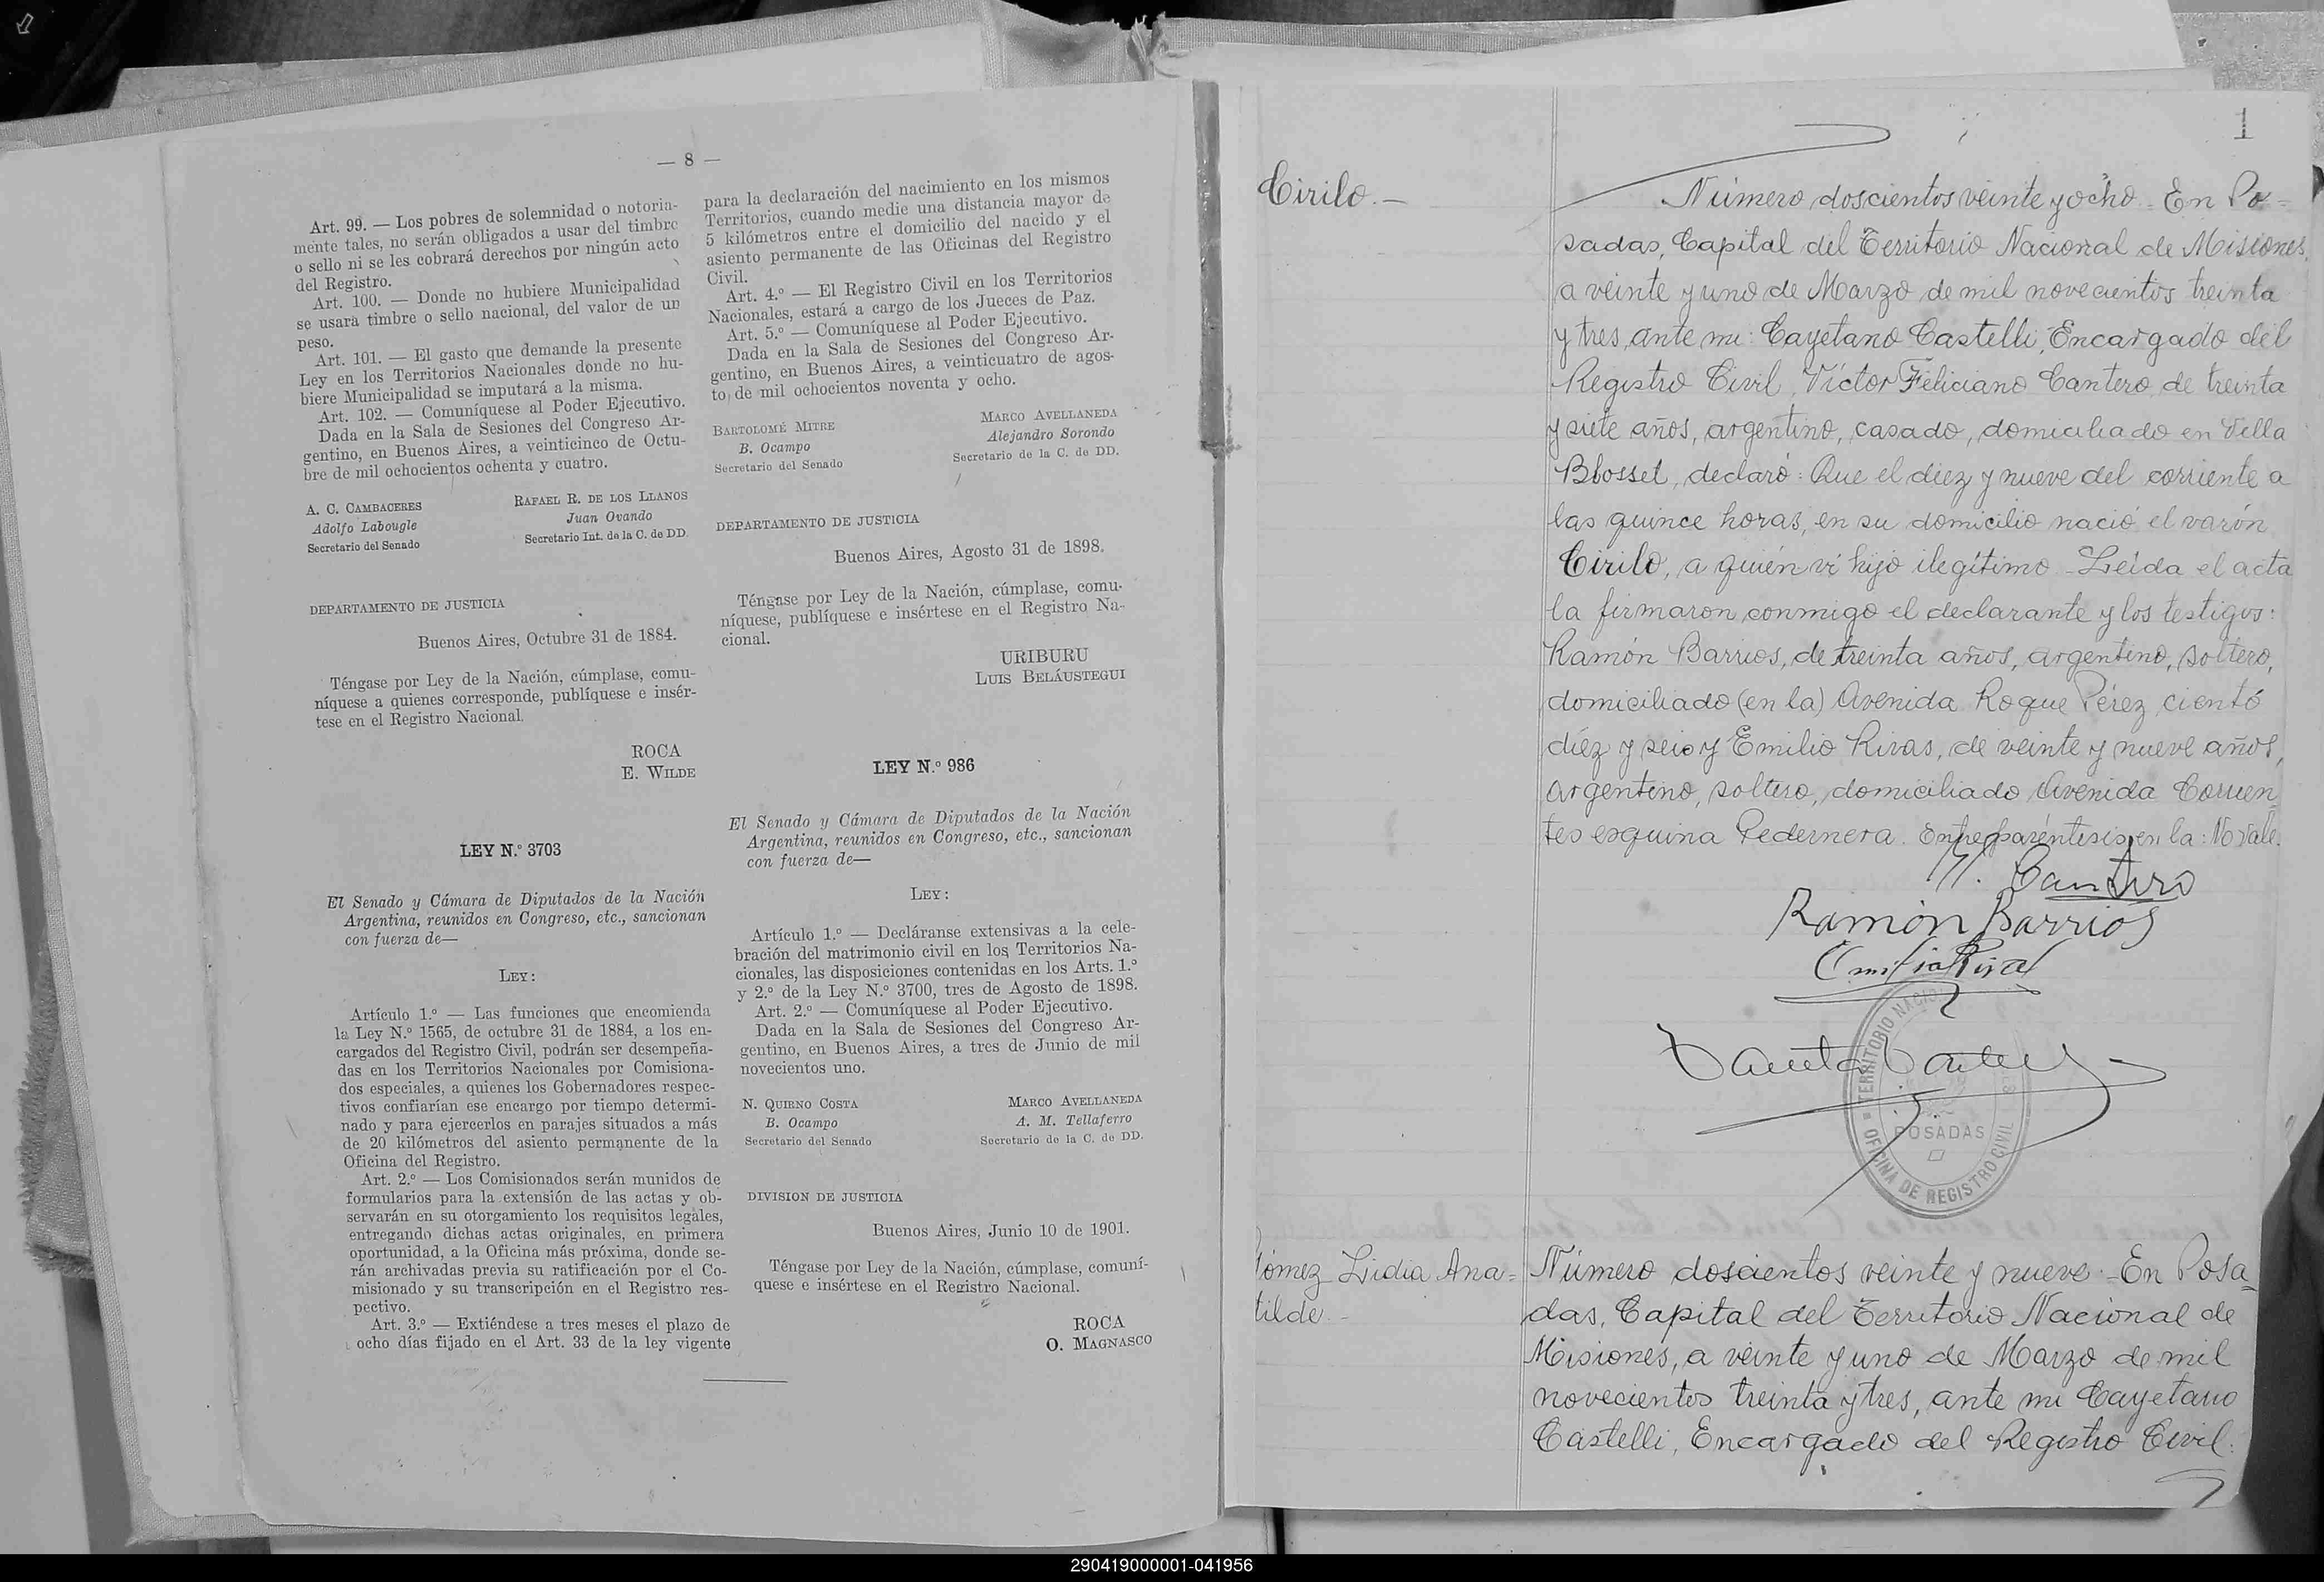 — 8 —
Art. 99. — Los pobres de solemnidad o notoria-
mente tales, no serán obligados a usar del timbre
o sello ni se les cobrará derechos por ningún acto
del Registro.
Art. 100. — Donde no hubiere Municipalidad
se usará timbre o sello nacional, del valor de un
peso.
Art. 101. — El gasto que demande la presente
Ley en los Territorios Nacionales donde no hu-
biere Municipalidad se imputará a la misma.
Art. 102. — Comuníquese al Poder Ejecutivo.
Dada en la Sala de Sesiones del Congreso Ar-
gentino, en Buenos Aires, a veinticinco de Octu-
bre de mil ochocientos ochenta y cuatro.
A. C. CAMBACERES
Adolfo Labougle
Secretario del Senado
RAFAEL R. DE LOS LLANOS
Juan Ovando
Secretario Int. de la C. de DD.
DEPARTAMENTO DE JUSTICIA
Buenos Aires, Octubre 31 de 1884.
Téngase por Ley de la Nación, cúmplase, comu-
níquese a quienes corresponde, publíquese e insér-
tese en el Registro Nacional.
ROCA
E. WILDE
LEY N.º 3703
El Senado y Cámara de Diputados de la Nación
Argentina, reunidos en Congreso, etc., sancionan
con fuerza de—
LEY:
Artículo 1.º — Las funciones que encomienda
la Ley N.º 1565, de octubre 31 de 1884, a los en-
cargados del Registro Civil, podrán ser desempeña-
das en los Territorios Nacionales por Comisiona-
dos especiales, a quienes los Gobernadores respec-
tivos confiarían ese encargo por tiempo determi-
nado y para ejercerlos en parajes situados a más
de 20 kilómetros del asiento permanente de la
Oficina del Registro.
Art. 2.º — Los Comisionados serán munidos de
formularios para la extensión de las actas y ob-
servarán en su otorgamiento los requisitos legales,
entregando dichas actas originales, en primera
oportunidad, a la Oficina más próxima, donde se-
rán archivadas previa su ratificación por el Co-
misionado y su transcripción en el Registro res-
pectivo.
Art. 3.º — Extiéndese a tres meses el plazo de
ocho días fijado en el Art. 33 de la ley vigente
para la declaración del nacimiento en los mismos
Territorios, cuando medie una distancia mayor de
5 kilómetros entre el domicilio del nacido y el
asiento permanente de las Oficinas del Registro
Civil.
Art. 4.º — El Registro Civil en los Territorios
Nacionales, estará a cargo de los Jueces de Paz.
Art. 5.º — Comuníquese al Poder Ejecutivo.
Dada en la Sala de Sesiones del Congreso Ar-
gentino, en Buenos Aires, a veinticuatro de agos-
to de mil ochocientos noventa y ocho.
BARTOLOMÉ MITRE
B. Ocampo
Secretario del Senado
MARCO AVELLANEDA
Alejandro Sorondo
Secretario de la C. de DD.
DEPARTAMENTO DE JUSTICIA
Buenos Aires, Agosto 31 de 1898.
Téngase por Ley de la Nación, cúmplase, comu-
níquese, publíquese e insértese en el Registro Na-
cional.
URIBURU
LUIS BELÁUSTEGUI
LEY N.º 986
El Senado y Cámara de Diputados de la Nación
Argentina, reunidos en Congreso, etc., sancionan
con fuerza de—
LEY:
Artículo 1.º — Decláranse extensivas a la cele-
bración del matrimonio civil en los Territorios Na-
cionales, las disposiciones contenidas en los Arts. 1.º
y 2.º de la Ley N.º 3700, tres de Agosto de 1898.
Art. 2.º — Comuníquese al Poder Ejecutivo.
Dada en la Sala de Sesiones del Congreso Ar-
gentino, en Buenos Aires, a tres de Junio de mil
novecientos uno.
N. QUIRNO COSTA
B. Ocampo
Secretario del Senado
MARCO AVELLANEDA
A. M. Tellaferro
Secretario de la C. de DD.
DIVISION DE JUSTICIA
Buenos Aires, Junio 10 de 1901.
Téngase por Ley de la Nación, cúmplase, comuní-
quese e insértese en el Registro Nacional.
ROCA
O. MAGNASCO
1
Cirilo.—
Número doscientos veinte y ocho - En Po=
sadas, Capital del Territorio Nacional de Misiones,
a veinte y uno de Marzo de mil novecientos treinta
y tres, ante mi: Cayetano Castelli, Encargado del
Registro Civil, Víctor Feliciano Cantero, de treinta
y siete años, argentino, casado, domiciliado en Villa
Blosset, declaró: Que el diez y nueve del corriente a
las quince horas, en su domicilio nació el varón
Cirilo, a quién ví hijo ilegítimo - Leída el acta
la firmaron conmigo el declarante y los testigos:
Ramón Barrios, de treinta años, argentino, soltero,
domiciliado (en la) Avenida Roque Pérez ciento
diez y seis y Emilio Rivas, de veinte y nueve años,
argentino, soltero, domiciliado Avenida Corrien
tes esquina Pedernera. Entre paréntesis, en la: No vale.
Cantero
Ramón Barrios
Emilio Rivas
TERRITORIO NACIO
POSADAS
OFICINA DE REGISTRO CIVIL
Gómez Lidia Ana=
tilde.-
Número doscientos veinte y nueve.- En Posa=
das, Capital del Territorio Nacional de
Misiones, a veinte y uno de Marzo de mil
novecientos treinta y tres, ante mi Cayetano
Castelli, Encargado del Registro Civil:
290419000001-041956